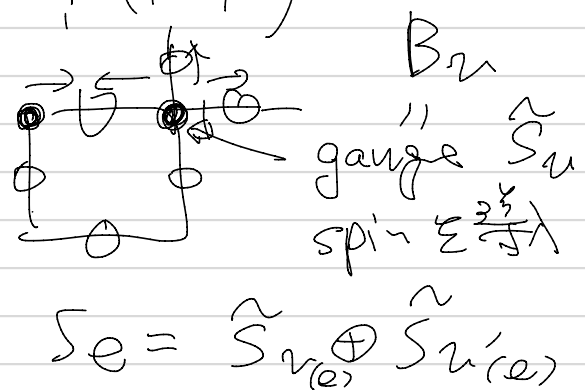 B_v
〃
gauge S̃_v
spin を導入
S_e = S̃_{v(e)} ⊕ S̃_{v'(e)}